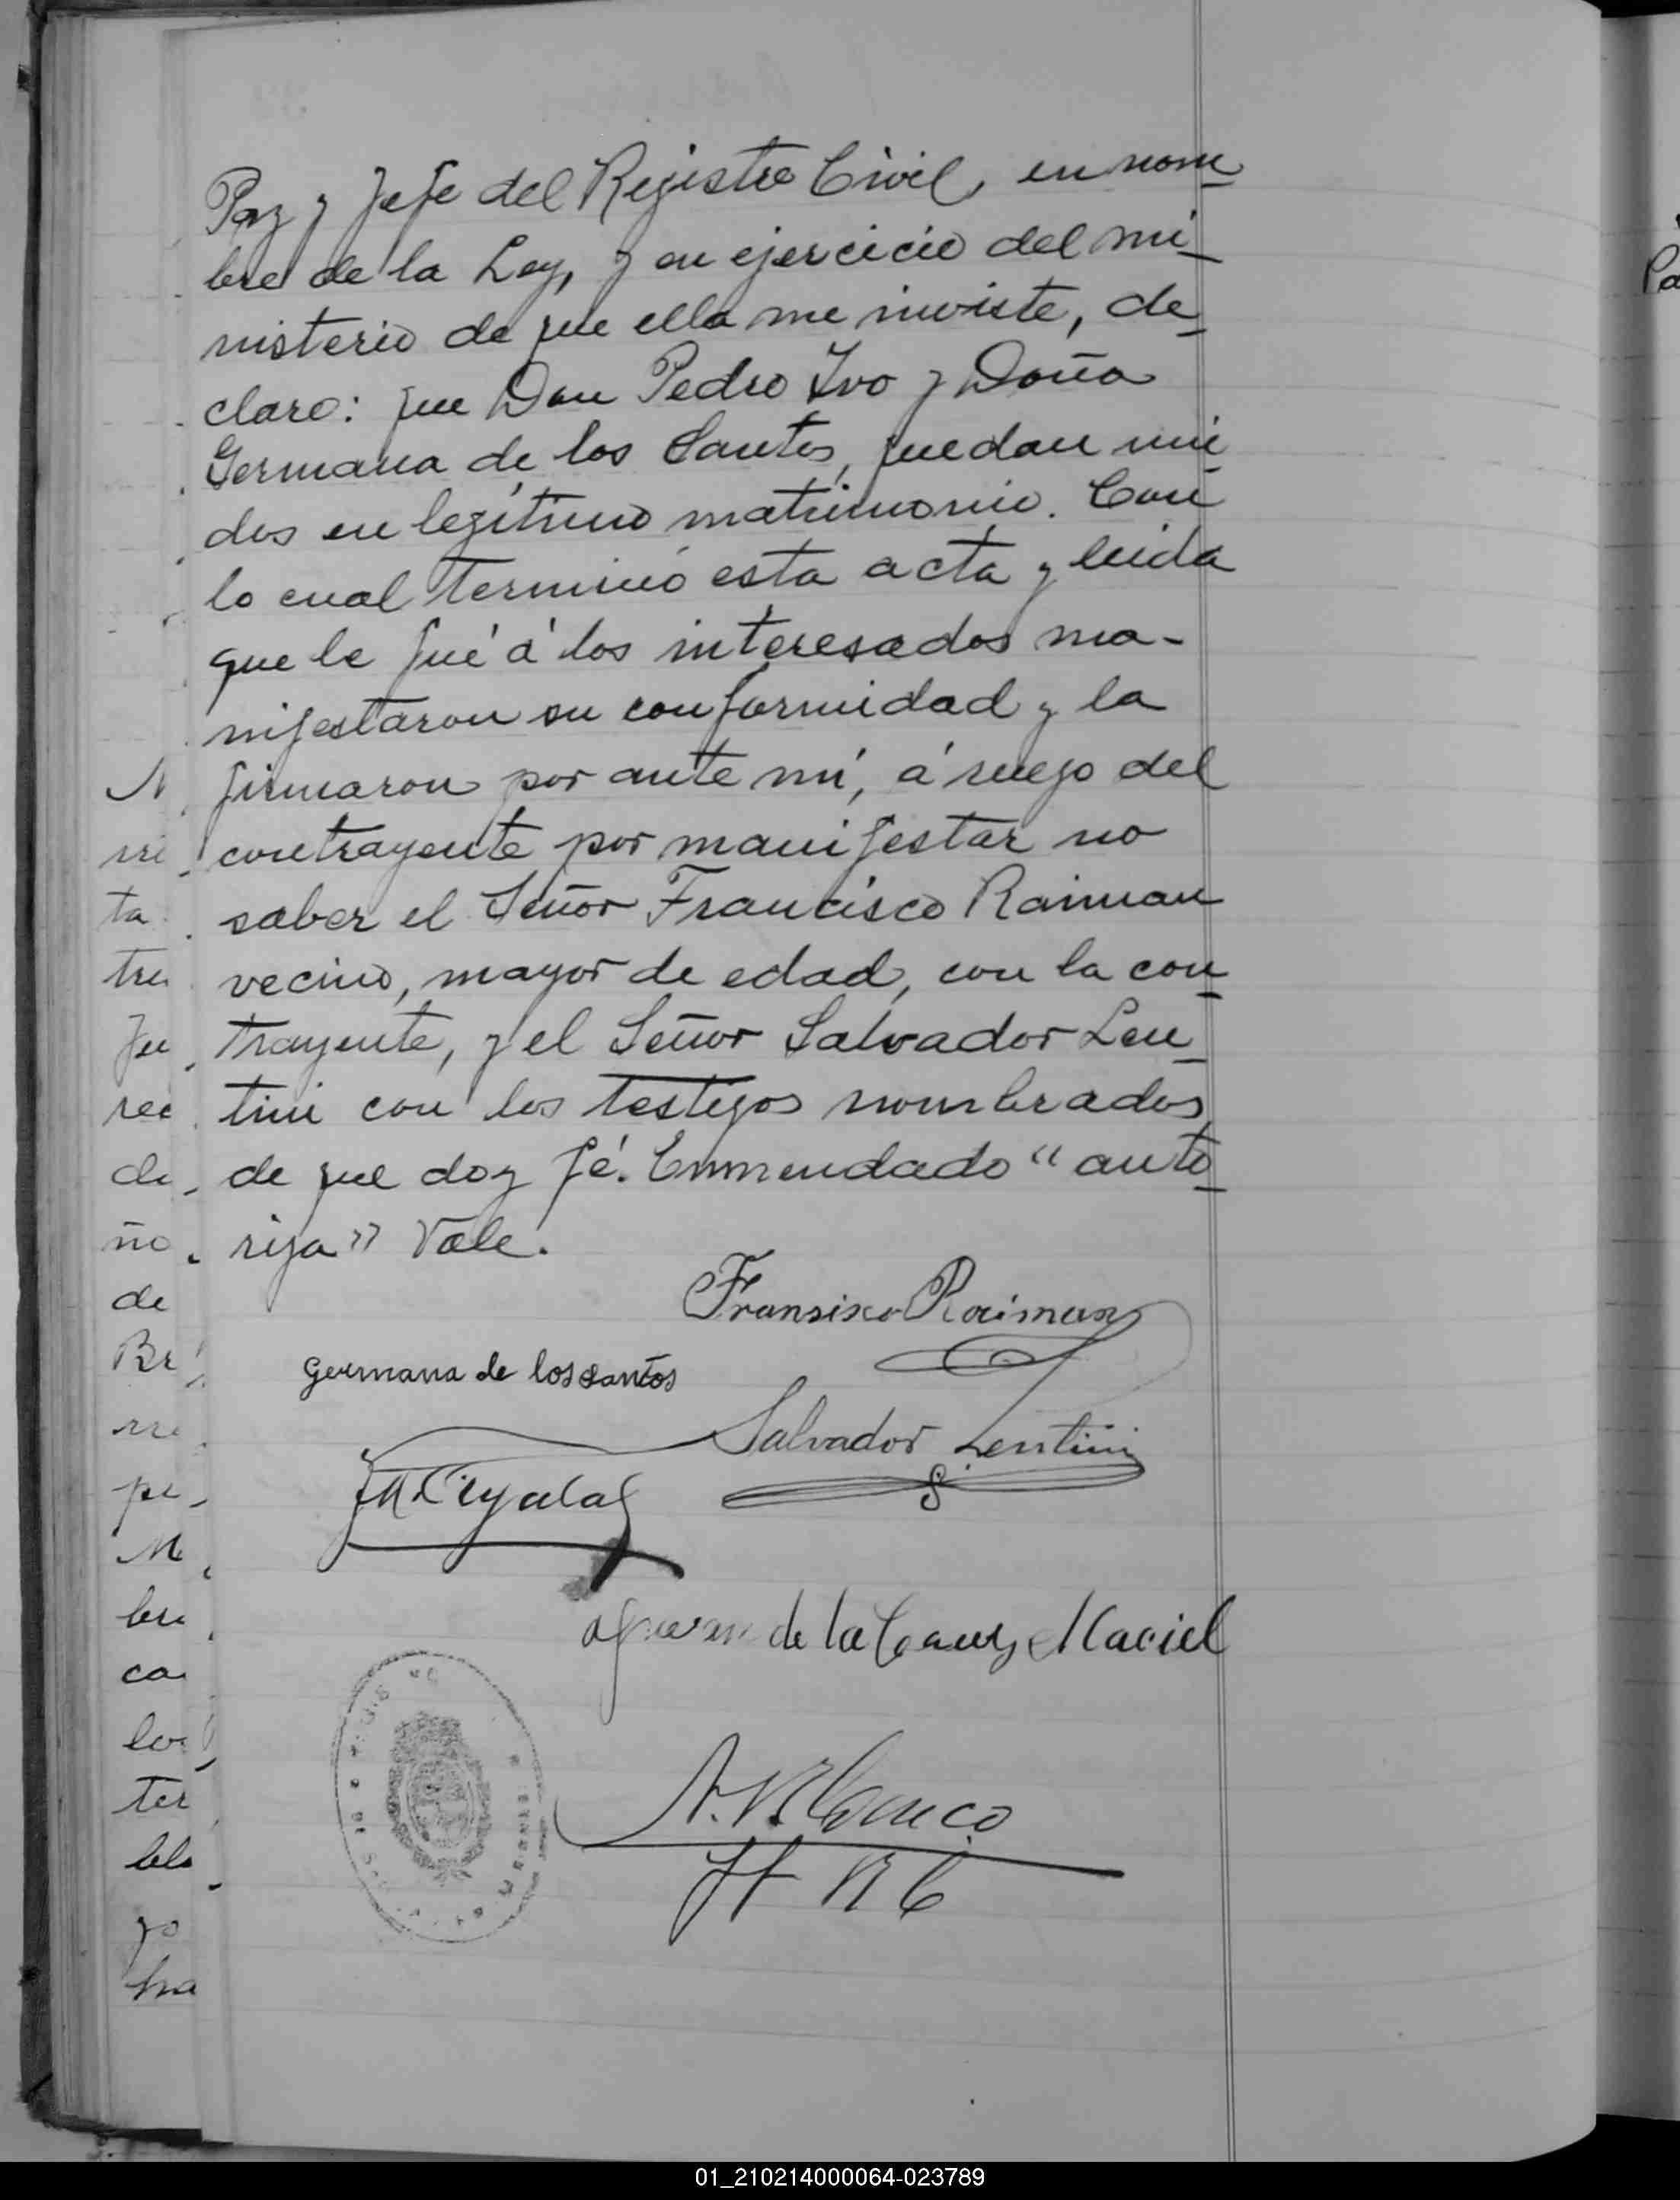 Paz y Jefe del Rejistro Civil, en nom_
bre de la Ley, y en ejercicio del mi_
nisterio de que ella me inviste, de_
claro: que Don Pedro Ivo y Doña
Germana de los Santos, quedan uni_
dos en legítimo matrimonio. Con
lo cual terminó esta acta y leida
que le fué á los interesados ma-
nifestaron su conformidad y la
firmaron por ante mí, á ruego del
contrayente por manifestar no
saber el Señor Francisco Raiman
vecino, mayor de edad, con la con_
trayente, y el Señor Salvador Len_
tini con los testigos nombrados
de que doy fé. Enmendado "auto_
riza" Vale.
Fransisco Raiman
Germana de los santos
Salvador Lentini
de la Cruz Maciel
N
ta
de
ño
de
Br
pe
M
bre
ca
los
ter
go
ha
01_210214000064-023789